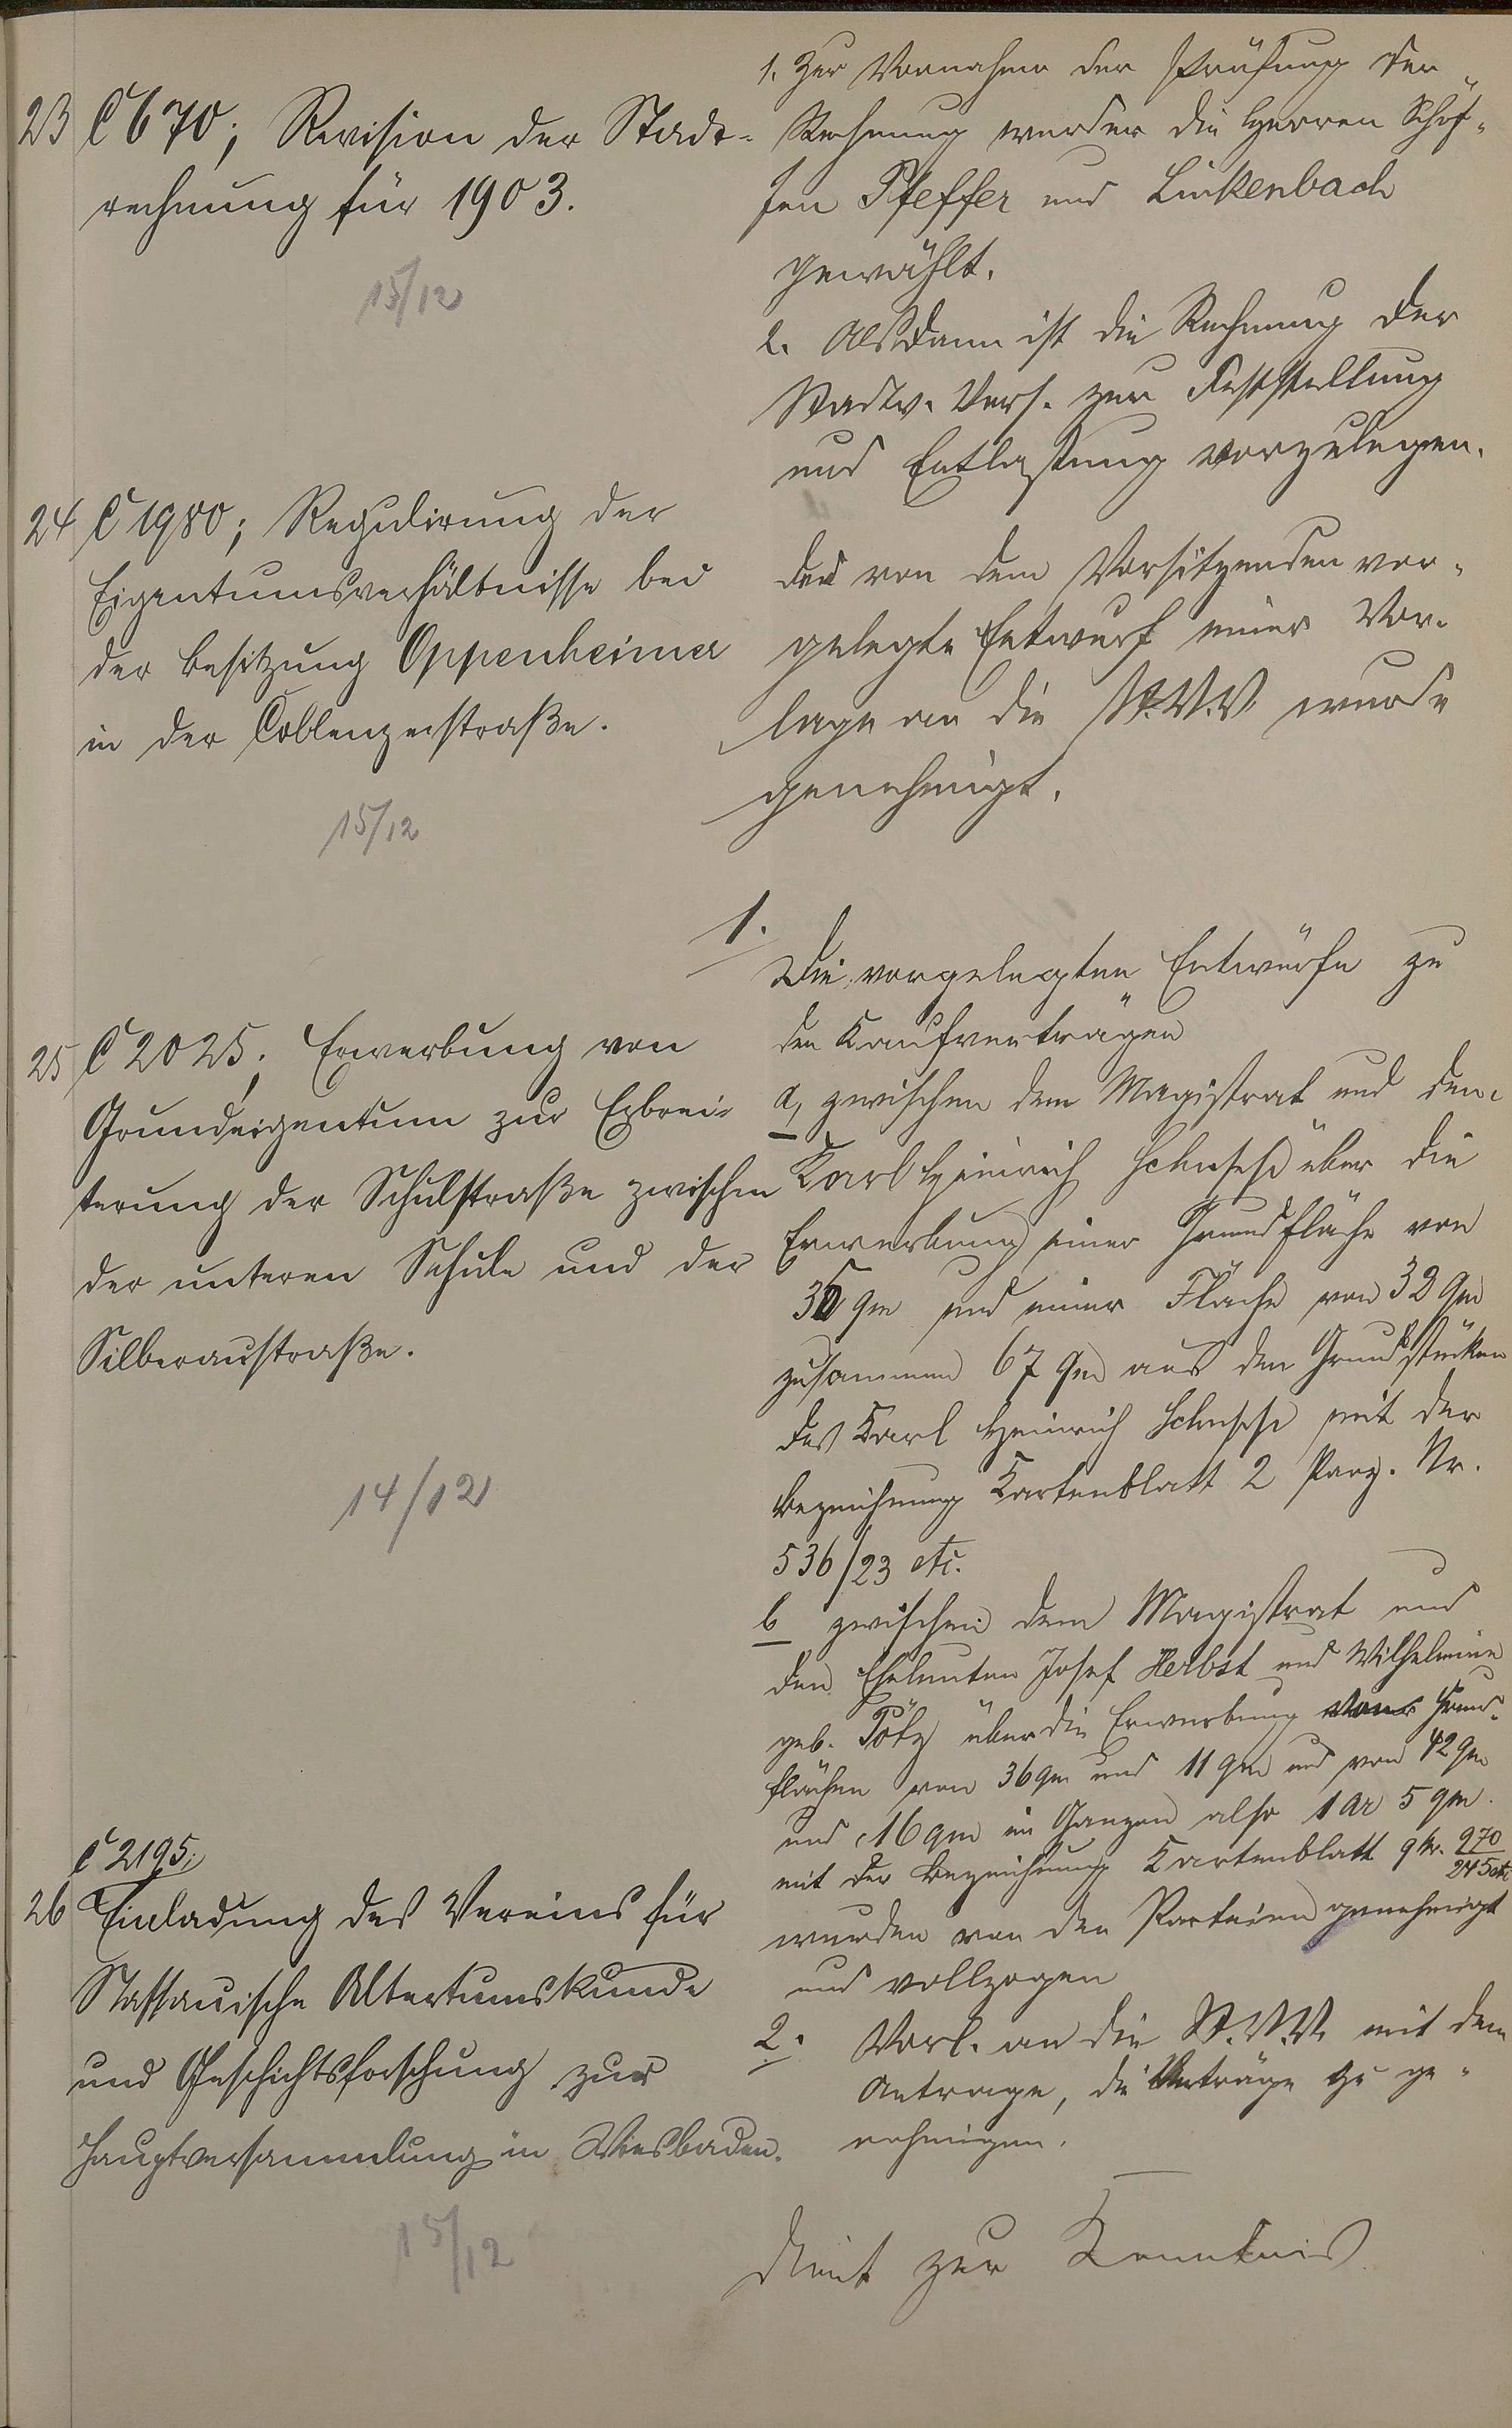 23 C 670; Revision der Stadt-
rechnung für 1903.
15/12
1. Zur Vornahme der Prüfung der
Rechnung werden die Herren Schöf-
fen Pfeffer und Linkenbach
gewählt.
2. Alsdann ist die Rechnung der
Stadtv. Vers. zur Feststellung
und Entlastung vorzulegen.
24 C 1980; Regulirung der
Eigentumsverhältnisse bei
der Besitzung Oppenheimer
in der Coblenzerstraße.
15/12
Der von dem Vorsitzenden vor-
gelegte Entwurf einer Vor-
lage an die St.V.V. wurde
genehmigt.
25 C 2025; Erwerbung von
Grundeigentum zur Erbrei-
terung der Schulstraße zwischen
der unteren Schule und der
Silberaustraße.
14/12
1.
Die vorgelegten Entwürfe zu
den Kaufverträgen
a, zwischen dem Magistrat und dem
Karl Heinrich über die
Erwerbung einer Grundfläche von
qm und einer Fläche von 32 qm
zusammen 67 qm aus den Grundstücken
des Karl Heinrich mit der
Bezeichnung Kartenblatt 2 Parz. Nr.
536/23 etc.
b zwischen dem Magistrat und
den Eheleuten Josef Herbst und Wilhelmine
geb. Pötz über die Erwerbung von Grund-
flächen von 36 qm und 11 qm und von 42 qm
und 16 qm im Ganzen also 1 ar 5 qm
mit der Bezeichnung Kartenblatt 9 Nr. 270/245 etc
wurden von den Parteien genehmigt
und vollzogen
2. Vorl. an die St.V.V. mit dem
Antrage, die Verträge zu ge-
nehmigen.
C 2195;
26 Einladung des Vereins für
Nassauische Altertumskunde
und Geschichtsforschung zur
Hauptversammlung in Wiesbaden.
15/12
Dient zur Kenntnis